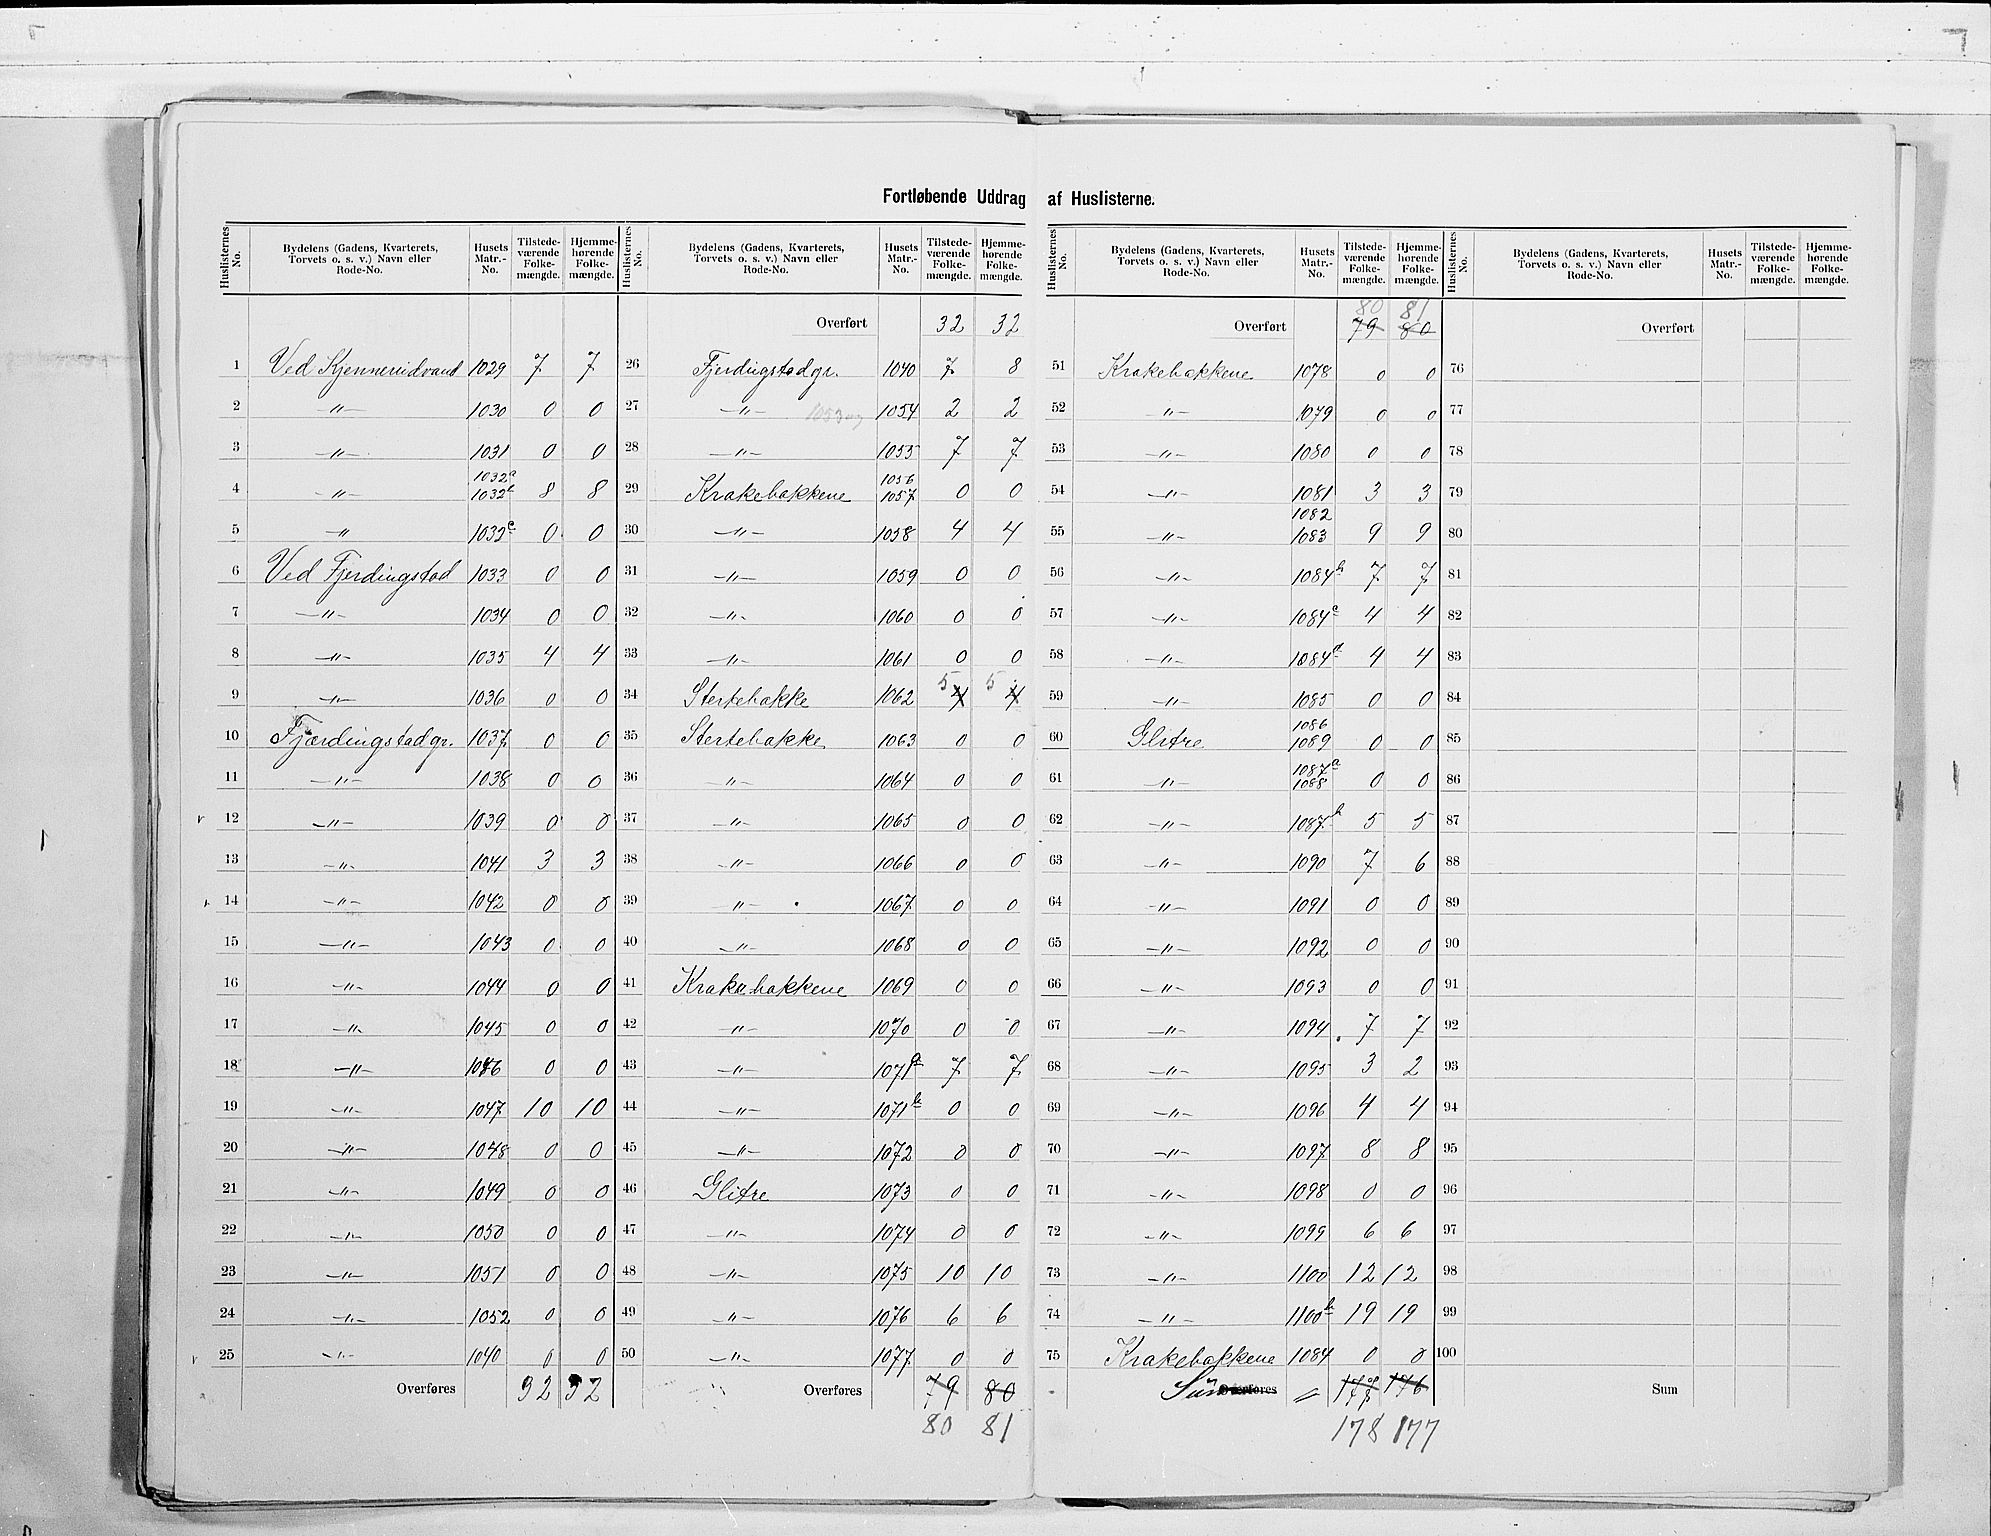 Fortløbende Uddrag af Huslisterne.
Huslisternes No. Bydelens (Gadens, Kvarterets, Torvets o. s. v.) Navn eller Rode-No. Husets Matr.-No. Tilstedeværende Folkemængde. Hjemmehørende Folkemængde.
1 Ved Kjennerudvand 1029 7 7
2 –〃– 1030 0 0
3 –〃– 1031 0 0
4 –〃– 1032a 1032b 8 8
5 –〃– 1032c 0 0
6 Ved Fjerdingstad 1033 0 0
7 –〃– 1034 0 0
8 –〃– 1035 4 4
9 –〃– 1036 0 0
10 Fjærdingstadgr. 1037 0 0
11 –〃– 1038 0 0
12 –〃– 1039 0 0
13 –〃– 1041 3 3
14 –〃– 1042 0 0
15 –〃– 1043 0 0
16 –〃– 1044 0 0
17 –〃– 1045 0 0
18 –〃– 1046 0 0
19 –〃– 1047 10 10
20 –〃– 1048 0 0
21 –〃– 1049 0 0
22 –〃– 1050 0 0
23 –〃– 1051 0 0
24 –〃– 1052 0 0
25 –〃– 1040 0 0
Overføres 32 32
Huslisternes No. Bydelens (Gadens, Kvarterets, Torvets o. s. v.) Navn eller Rode-No. Husets Matr.-No. Tilstedeværende Folkemængde. Hjemmehørende Folkemængde.
Overført 32 32
26 Fjerdingstadgr. 1040 7 8
27 –〃– 1053 og 1054 2 2
28 –〃– 1055 7 7
29 Krakebakkene 1056 1057 0 0
30 –〃– 1058 4 4
31 –〃– 1059 0 0
32 –〃– 1060 0 0
33 –〃– 1061 0 0
34 Stertebakke 1062 5 4 5 4
35 Stertebakke 1063 0 0
36 –〃– 1064 0 0
37 –〃– 1065 0 0
38 –〃– 1066 0 0
39 –〃– 1067 0 0
40 –〃– 1068 0 0
41 Krakebakkene 1069 0 0
42 –〃– 1070 0 0
43 –〃– 1071a 7 7
44 –〃– 1071b 0 0
45 –〃– 1072 0 0
46 Glitre 1073 0 0
47 –〃– 1074 0 0
48 –〃– 1075 10 10
49 –〃– 1076 6 6
50 –〃– 1077 0 0
Overføres 79 80
80 81
Huslisternes No. Bydelens (Gadens, Kvarterets, Torvets o. s. v.) Navn eller Rode-No. Husets Matr.-No. Tilstedeværende Folkemængde. Hjemmehørende Folkemængde.
80 81
Overført 79 80
51 Krakebakkene 1078 0 0
52 〃 1079 0 0
53 –〃– 1080 0 0
54 –〃– 1081 3 3
55 –〃– 1082 1083 9 9
56 –〃– 1084b 7 7
57 –〃– 1084c 4 4
58 –〃– 1084d 4 4
59 –〃– 1085 0 0
60 Glitre 1086 1089 0 0
61 –〃– 1087a 1088 0 0
62 –〃– 1087b 5 5
63 –〃– 1090 7 6
64 –〃– 1091 0 0
65 –〃– 1092 0 0
66 –〃– 1093 0 0
67 –〃– 1094 7 7
68 –〃– 1095 3 2
69 –〃– 1096 4 4
70 –〃– 1097 8 8
71 –〃– 1098 0 0
72 –〃– 1099 6 6
73 –〃– 1100 12 12
74 –〃– 1100b 19 19
75 Krakebakkene 1084 0 0
Sum Overføres 176
178 177
Huslisternes No. Bydelens (Gadens, Kvarterets, Torvets o. s. v.) Navn eller Rode-No. Husets Matr.-No. Tilstedeværende Folkemængde. Hjemmehørende Folkemængde.
Overført
76
77
78
79
80
81
82
83
84
85
86
87
88
89
90
91
92
93
94
95
96
97
98
99
100
Sum